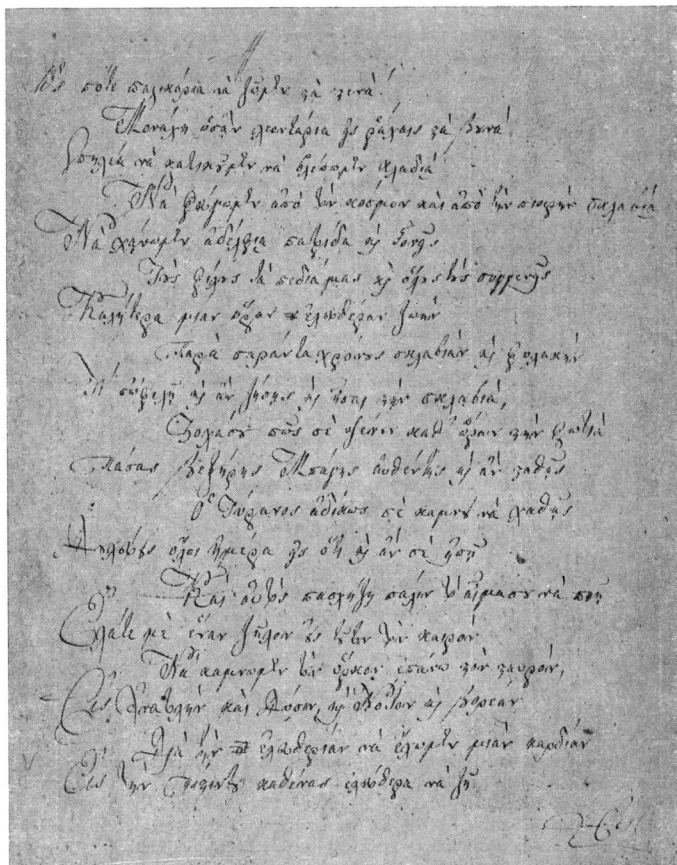 Ὣς πότε παλικάρια νὰ ζοῦμεν στὰ στενά!
Μονάχη ὡσὰν λεοντάρια ῥάχαις στὰ βουνά
Σπηλιὰ νὰ κατικοῦμεν νὰ βλέπωμεν κλαδιά
Νὰ φεύγωμεν ἀπὸ τὸν κόσμον καὶ ἀπὸ τὴν πικρὴν σκλαβιά
Νὰ χάνωμεν ἀδέλφια πατρίδα κὶ γονεῖς
Τοὺς φίλους τὰ πεδιά μας κὶ ὅλους τοὺς συγγενεῖς
Καλήτερα μιαν ὥραν ἐλευθέραν ζωήν
Παρὰ σαράντα χρόνους σκλαβιὰν κὶ φυλακήν
Τί σ' ὠφελῇ κὶ ἂν ζήσῃς κὶ εἶσαι στὴν σκλαβιά,
Στοχάσου πῶς σὲ ψένουν καθ' ὥραν στὴν φωτιά
Πασας Βεζήρης Μπάγης αὐθέντης κὶ ἂν σταθῇς
Ὁ Τύρανος ἀδίκως σὲ κάμνει νὰ χαθῇς
Δουλεύεις ὅλη ἡμέρα εἰς ὅτι κὶ ἂν σὲ εἰπῇ
Καὶ αὐτὸς πασχήζη πάλιν τὸ αἷμα σου νὰ πιῇ
Ἐλάτε μὲ ἕναν ζῆλον τοῦτον τὸν καιρόν
Νὰ κάμνωμεν τὸν ὅρκον ἐπάνω στὸν σταυρόν,
Εἰς Ἀνατολὴν καὶ Δύσιν, κὶ Νότον κὶ Βορεάν
Διὰ τὴν ἐλευθερίαν νὰ ἔχωμεν μιαν καρδιάν
Εἰς τὴν πίστιν του καθένας ἐλεύθερα νὰ ζῇ
Εἰς